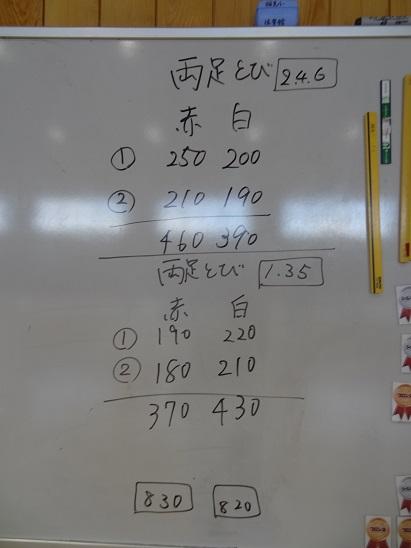 両足とび 2.4.6
赤 白
① 250 200
② 210 190
460 390
両足とび 1.35
赤 白
① 190 220
② 180 210
370 430
830 820